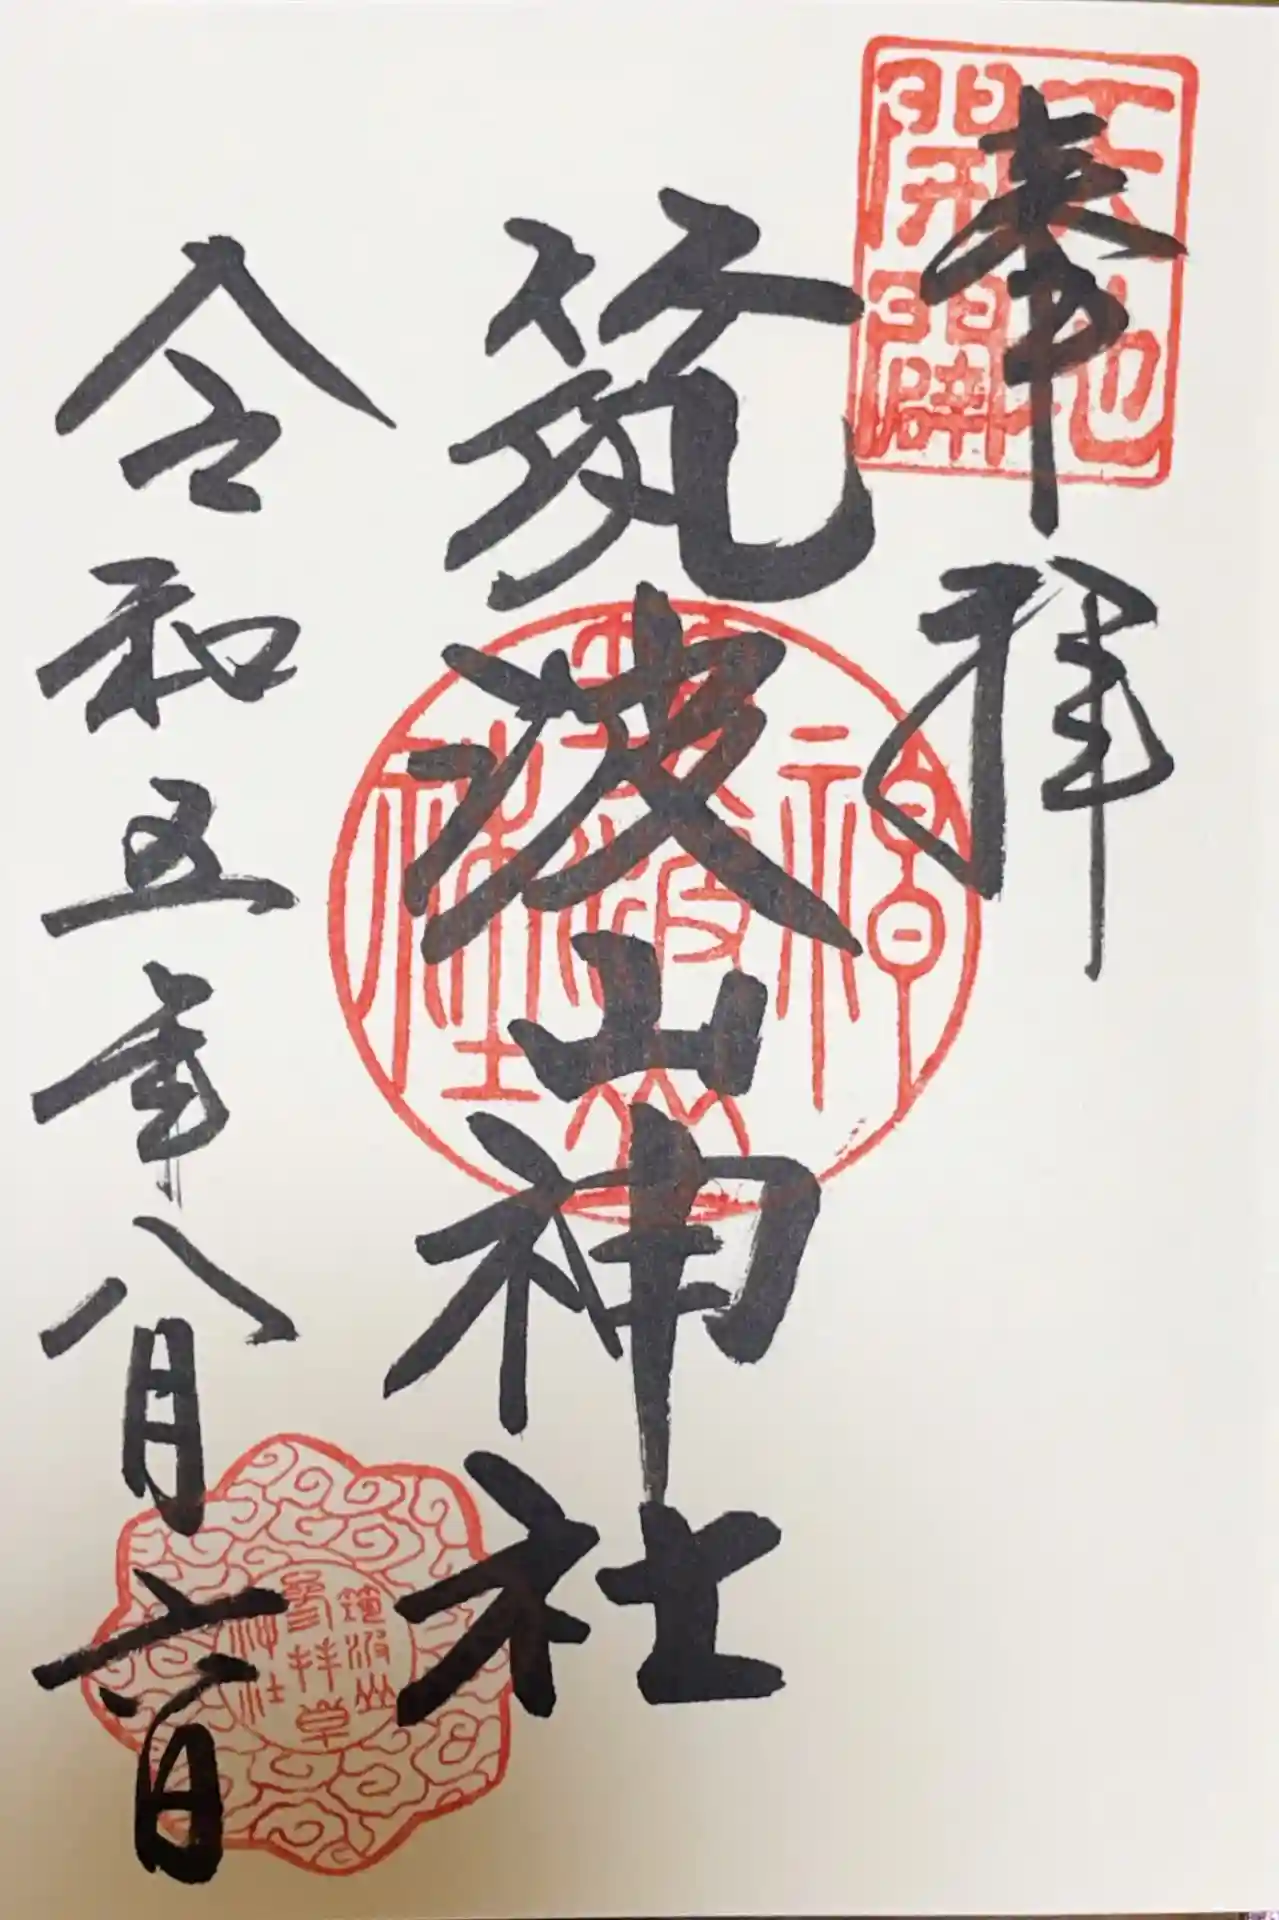 奉拝
天地
開闢
筑波山神社
令和五年八月六日
筑波山
参拝堂
神社